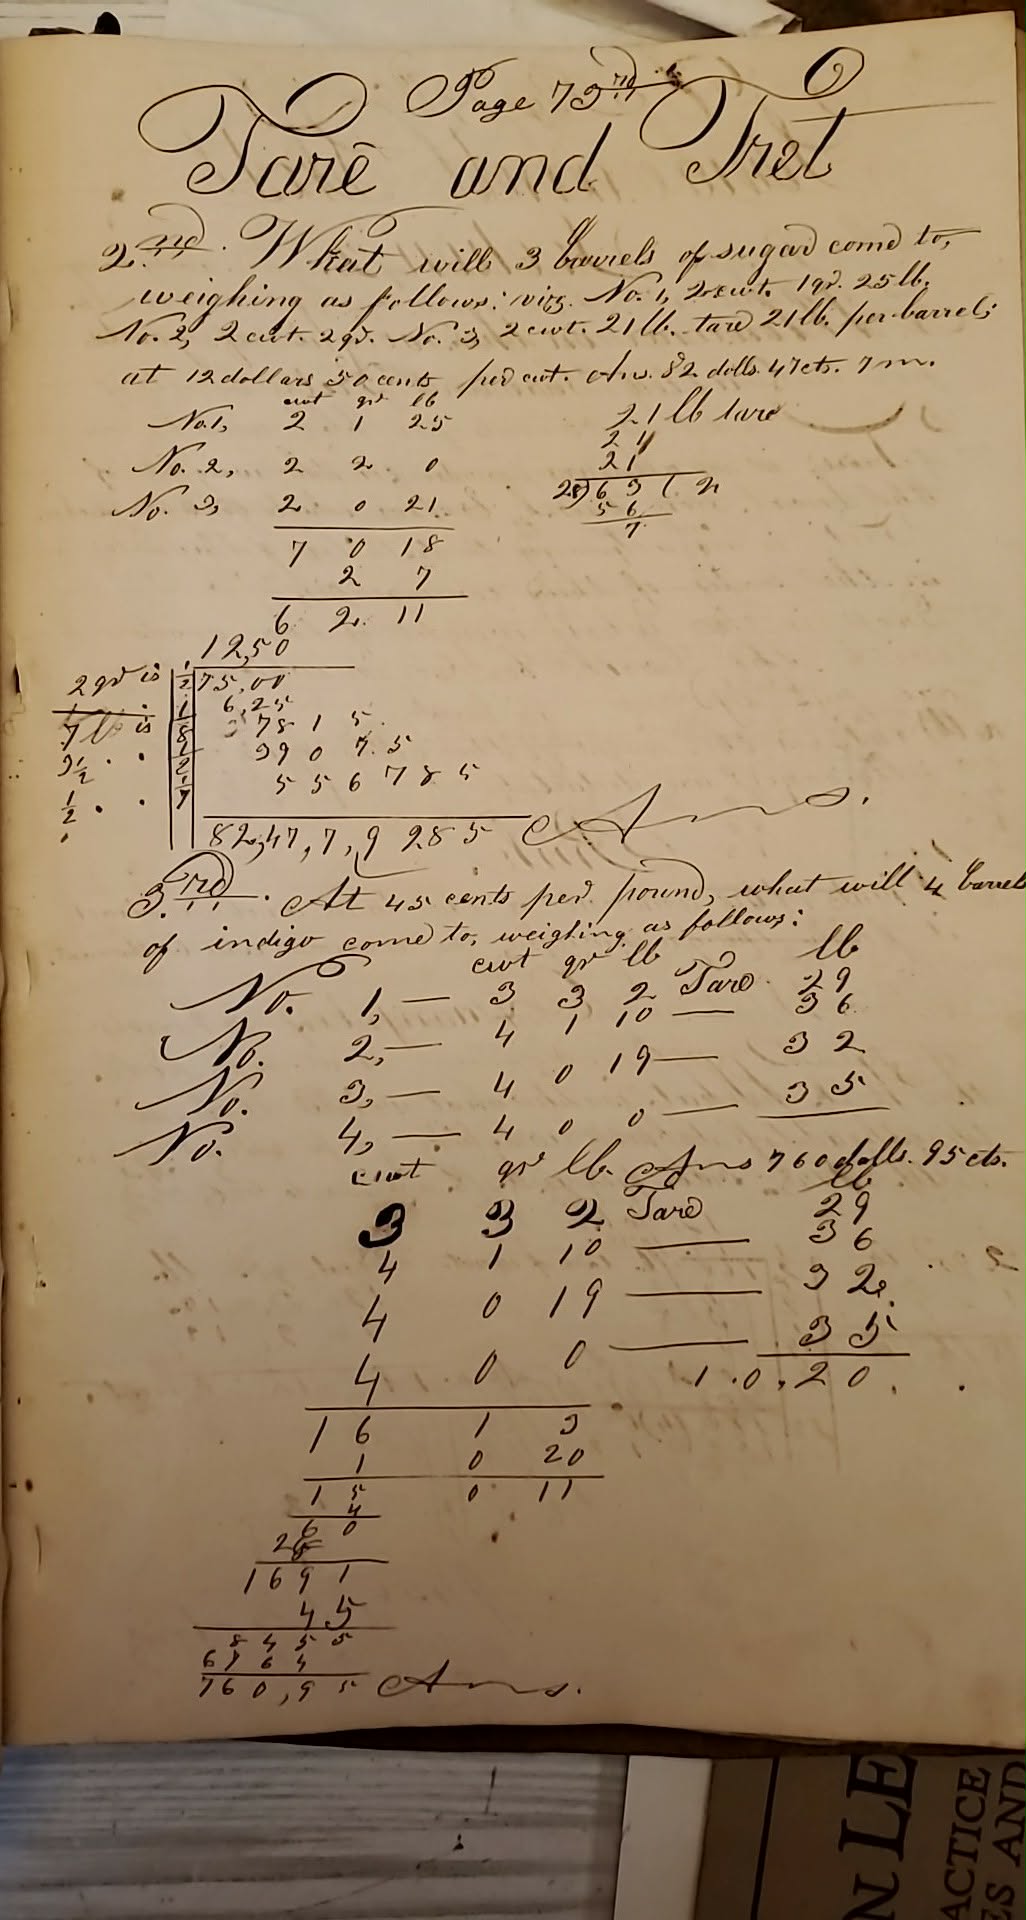 Page 73rd
Tare and Tret
2nd. What will 3 barrels of sugar come to,
weighing as follows: viz. No. 1, 2 cwt. 1 qr. 25 lb.
No. 2, 2 cwt. 2 qr. No. 3, 2 cwt. 21 lb. tare 21 lb. per barrel;
at 12 dollars 50 cents per cwt. Ans. 82 dolls. 47 cts. 7 m.
cwt qr lb
No. 1, 2 1 25 21 lb tare
21
No. 2, 2 2 0 21
28)63(2
No. 3, 2 0 21 56
7
7 0 18
2 7
6 2 11
12,50
2 qr is 1/2 75,00
6,25
7 lb is 1/8 78 1 5
3 1/2 1/2 39 0 7 5
1/2 1/7 5 5 6 7 8 5
82,47,7,9 285 Ans.
3rd. At 45 cents per pound, what will 4 barrels
of indigo come to, weighing as follows:
cwt qr lb lb
No. 1, — 3 3 2 Tare 29
No. 2, — 4 1 10 — 36
No. 3, — 4 0 19 — 32
No. 4, — 4 0 0 — 35
Ans 760 dolls. 95 cts.
cwt qr lb. lb
3 3 2 Tare 29
4 1 10 — 36
4 0 19 — 32
4 0 0 — 35
1.0.20
16 1 3
1 0 20
15 0 11
4
60
28
1691
45
8455
6764
760,95 Ans.
N LE
ACTICE
ES AND